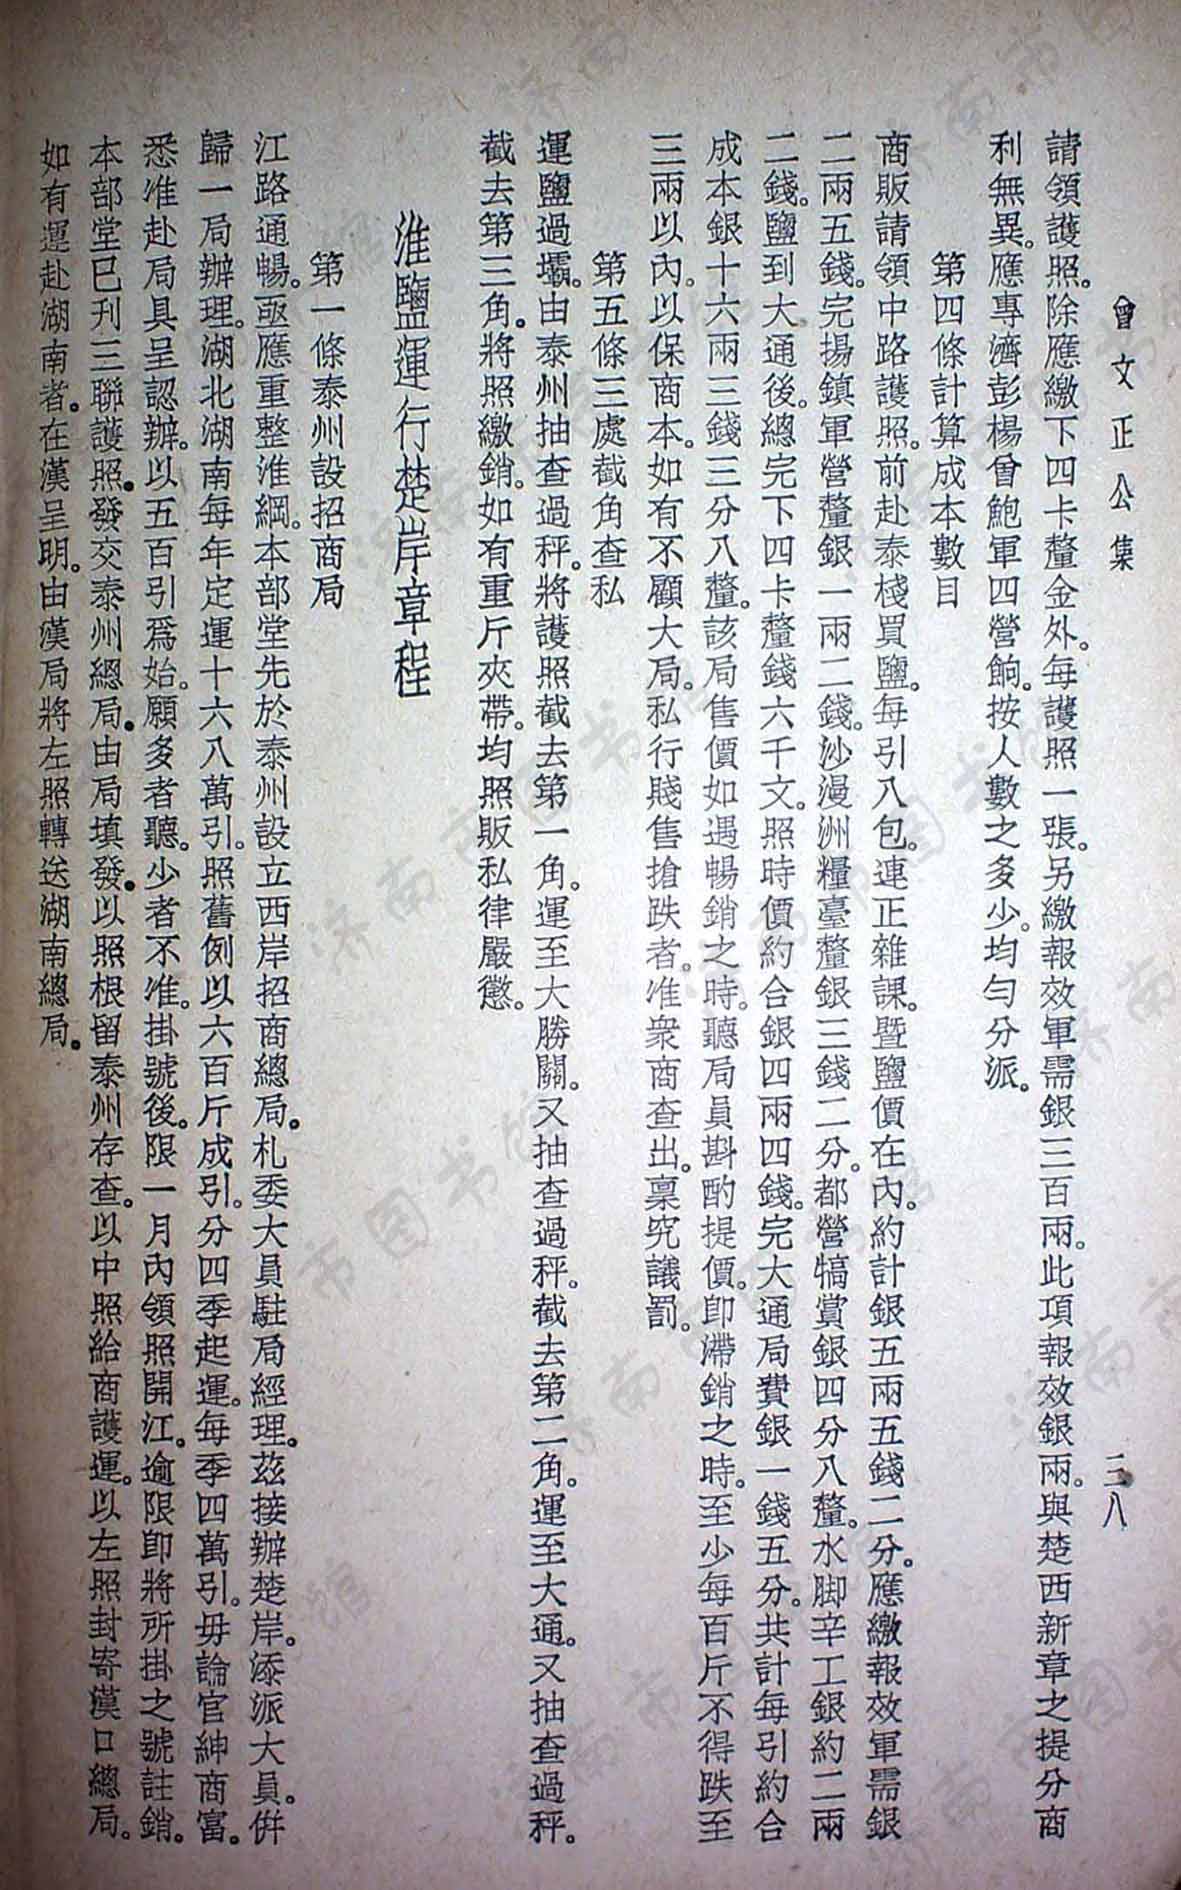 曾文正公集
三八
請領護照。除應繳下四卡釐金外。每護照一張。另繳報效軍需銀三百兩。此項報效銀兩。與楚西新章之提分商
利無異。應專濟彭楊曾鮑軍四營餉。按人數之多少。均勻分派。
第四條計算成本數目
商販請領中路護照。前赴泰棧買鹽。每引八包。連正雜課。暨鹽價在內。約計銀五兩五錢二分。應繳報效軍需銀
二兩五錢。完揚鎮軍營釐銀一兩二錢。沙漫洲糧臺釐銀三錢二分。都營犒賞銀四分八釐。水脚辛工銀約二兩
二錢。鹽到大通後。總完下四卡釐錢六千文。照時價約合銀四兩四錢。完大通局費銀一錢五分。共計每引約合
成本銀十六兩三錢三分八釐。該局售價如遇暢銷之時。聽局員斟酌提價。卽滯銷之時。至少每百斤不得跌至
三兩以內。以保商本。如有不顧大局。私行賤售搶跌者。准衆商查出。稟究議罰。
第五條三處截角查私
運鹽過壩。由泰州抽查過秤。將護照截去第一角。運至大勝關。又抽查過秤。截去第二角。運至大通。又抽查過秤。
截去第三角。將照繳銷。如有重斤夾帶。均照販私律嚴懲。
淮鹽運行楚岸章程
第一條泰州設招商局
江路通暢。亟應重整淮綱。本部堂先於泰州設立西岸招商總局。札委大員駐局經理。茲接辦楚岸。添派大員。併
歸一局辦理。湖北湖南每年定運十六八萬引。照舊例以六百斤成引。分四季起運。每季四萬引。毋論官紳商富。
悉准赴局具呈認辦。以五百引爲始。願多者聽。少者不准。掛號後。限一月內領照開江。逾限卽將所掛之號註銷。
本部堂已刊三聯護照。發交泰州總局。由局填發。以照根留泰州存查。以中照給商護運。以左照封寄漢口總局。
如有運赴湖南者。在漢呈明。由漢局將左照轉送湖南總局。